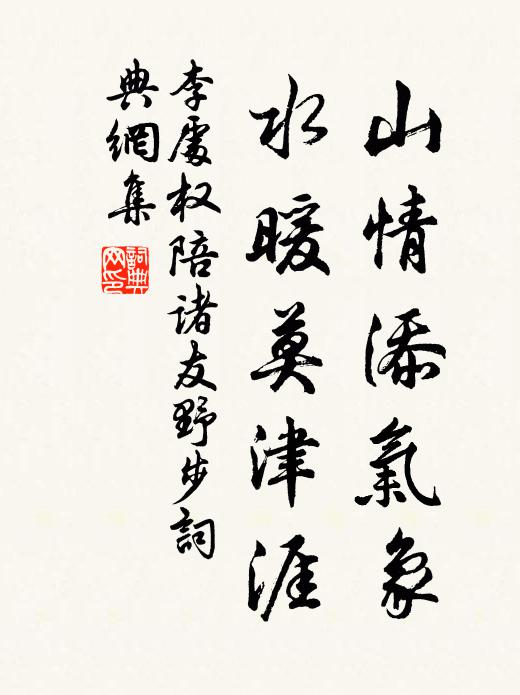 山情添氣象
水暖莫津涯
李處权陪诸友野步詞
典網集
詞典
网印